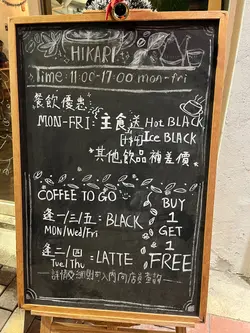 HIKARI
Time: 11:00-17:00 mon-fri
餐飲優惠:
MON-FRI: 主食送 Hot BLACK
Ice BLACK
*其他飲品補差價*
COFFEE TO GO
逢一/三/五: BLACK
MON/Wed/Fri
逢二/四 : LATTE
Tue/Thu
BUY
1
GET
1
FREE